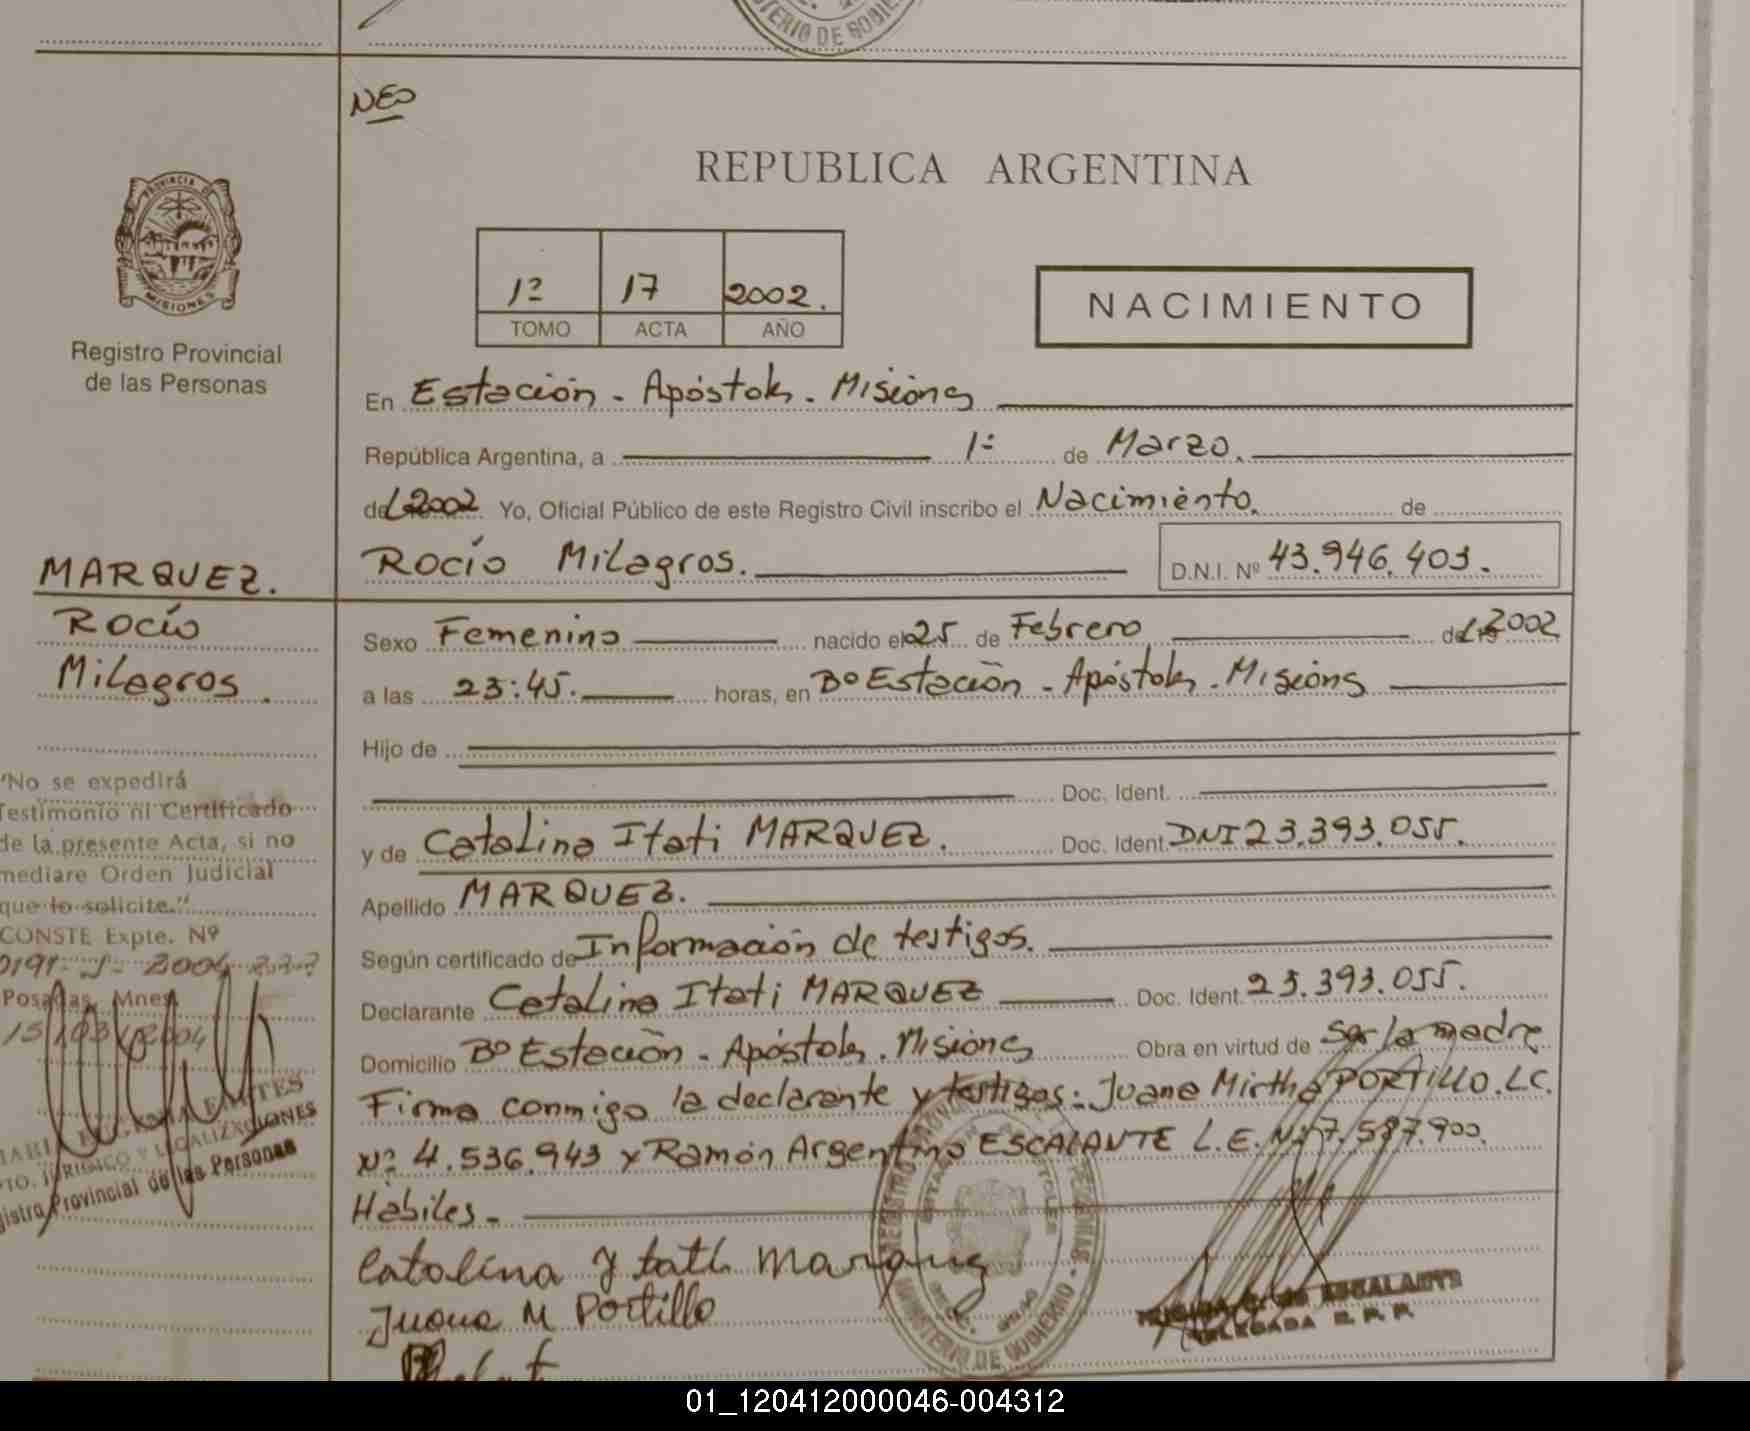 MINISTERIO DE GOBIE
NEO
REPUBLICA ARGENTINA
PROVINCIA DE
MISIONES
Registro Provincial
de las Personas
1º 17 2002.
TOMO ACTA AÑO
NACIMIENTO
En Estación - Apóstoles - Misiones
República Argentina, a 1º de Marzo.
del 2002 Yo, Oficial Público de este Registro Civil inscribo el Nacimiento. de
Rocío Milagros. D.N.I. Nº 43.946.403.
MARQUEZ.
Rocío
Milagros.
Sexo Femenino nacido el 25 de Febrero del 2002
a las 23:45. horas, en Bº Estación - Apóstoles - Misiones
Hijo de
Doc. Ident.
y de Catalina Itati MARQUEZ. Doc. Ident. DNI 23.393.055.
Apellido MARQUEZ.
Según certificado de Información de testigos.
Declarante Catalina Itati MARQUEZ Doc. Ident. 23.393.055.
Domicilio Bº Estación - Apóstoles - Misiones Obra en virtud de Ser la madre
Firma conmigo la declarante y testigos: Juana Mirtha PORTILLO. L.C.
Nº 4.536.943 y Ramón Argentino ESCALANTE L.E. Nº 7.587.900.
Hábiles -
"No se expedirá
Testimonio ni Certificado
de la presente Acta, si no
mediare Orden Judicial
que lo solicite."
CONSTE Expte. Nº
Posadas, Mnes.
15/03/2004
Registro Provincial de las Personas
Catalina Ytati Marquez
Juana M Portillo
MINISTERIO DE GOBIERNO
ESCALANTE
DELEGADA R. P. P.
01_120412000046-004312